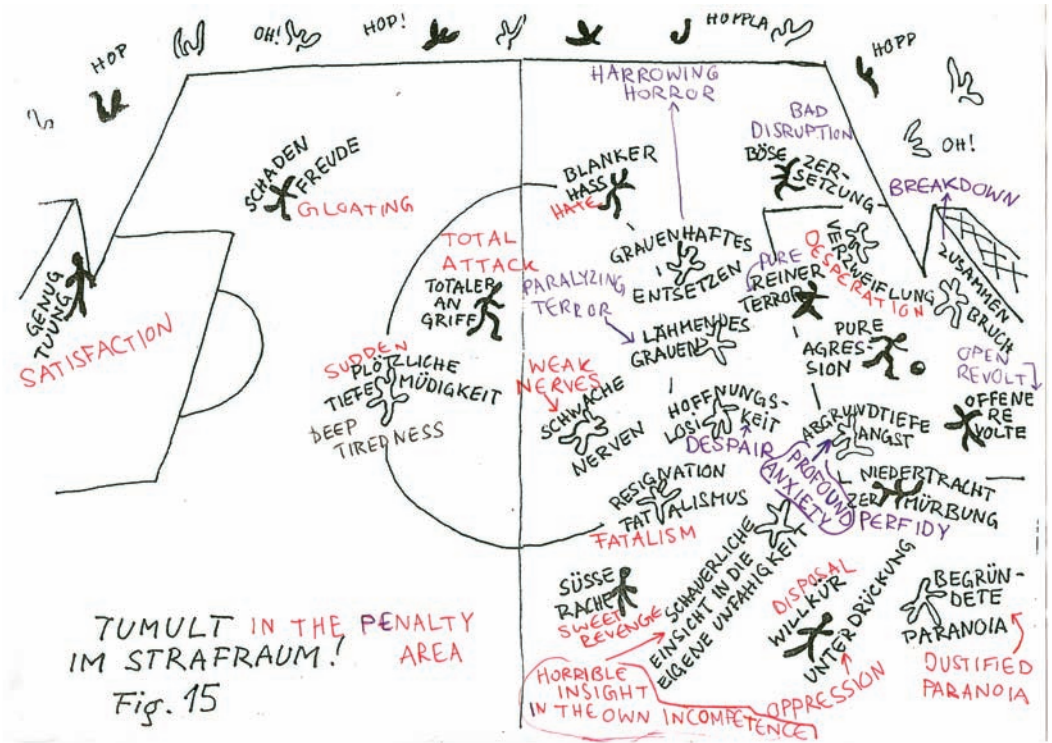 HOP
OH!
HOP!
HOPPLA
HOPP
OH!
HARROWING
HORROR
BAD
DISRUPTION
BÖSE ZER-
SETZUNG
BREAKDOWN
ZUSAMMEN
BRUCH
SCHADEN
FREUDE
GLOATING
BLANKER
HASS
HATE
GRAUENHAFTES
ENTSETZEN
VERZWEIFLUNG
DESPERATION
PURE
REINER
TERROR
TOTAL
ATTACK
TOTALER
AN
GRIFF
PARALYZING
TERROR
LÄHMENDES
GRAUEN
PURE
AGRES-
SION
GENUG
TUUNG
SATISFACTION
SUDDEN
PLÖTZLICHE
TIEFE MÜDIGKEIT
DEEP
TIREDNESS
WEAK
NERVES
SCHWACHE
NERVEN
HOFFNUNGS-
LOSIGKEIT
DESPAIR
ABGRUNDTIEFE
ANGST
PROFOUND
ANXIETY
OPEN
REVOLT
OFFENE
RE
VOLTE
RESIGNATION
FATALISMUS
FATALISM
NIEDERTRACHT
ZERMÜRBUNG
PERFIDY
SÜSSE
RACHE
SWEET
REVENGE
SCHAUERLICHE
EINSICHT IN DIE
EIGENE UNFÄHIGKEIT
HORRIBLE
INSIGHT
IN THE OWN INCOMPETENCE
DISPOSAL
WILLKÜR
UNTERDRÜCKUNG
OPPRESSION
BEGRÜN-
DETE
PARANOIA
JUSTIFIED
PARANOIA
TUMULT IN THE PENALTY
IM STRAFRAUM! AREA
Fig. 15